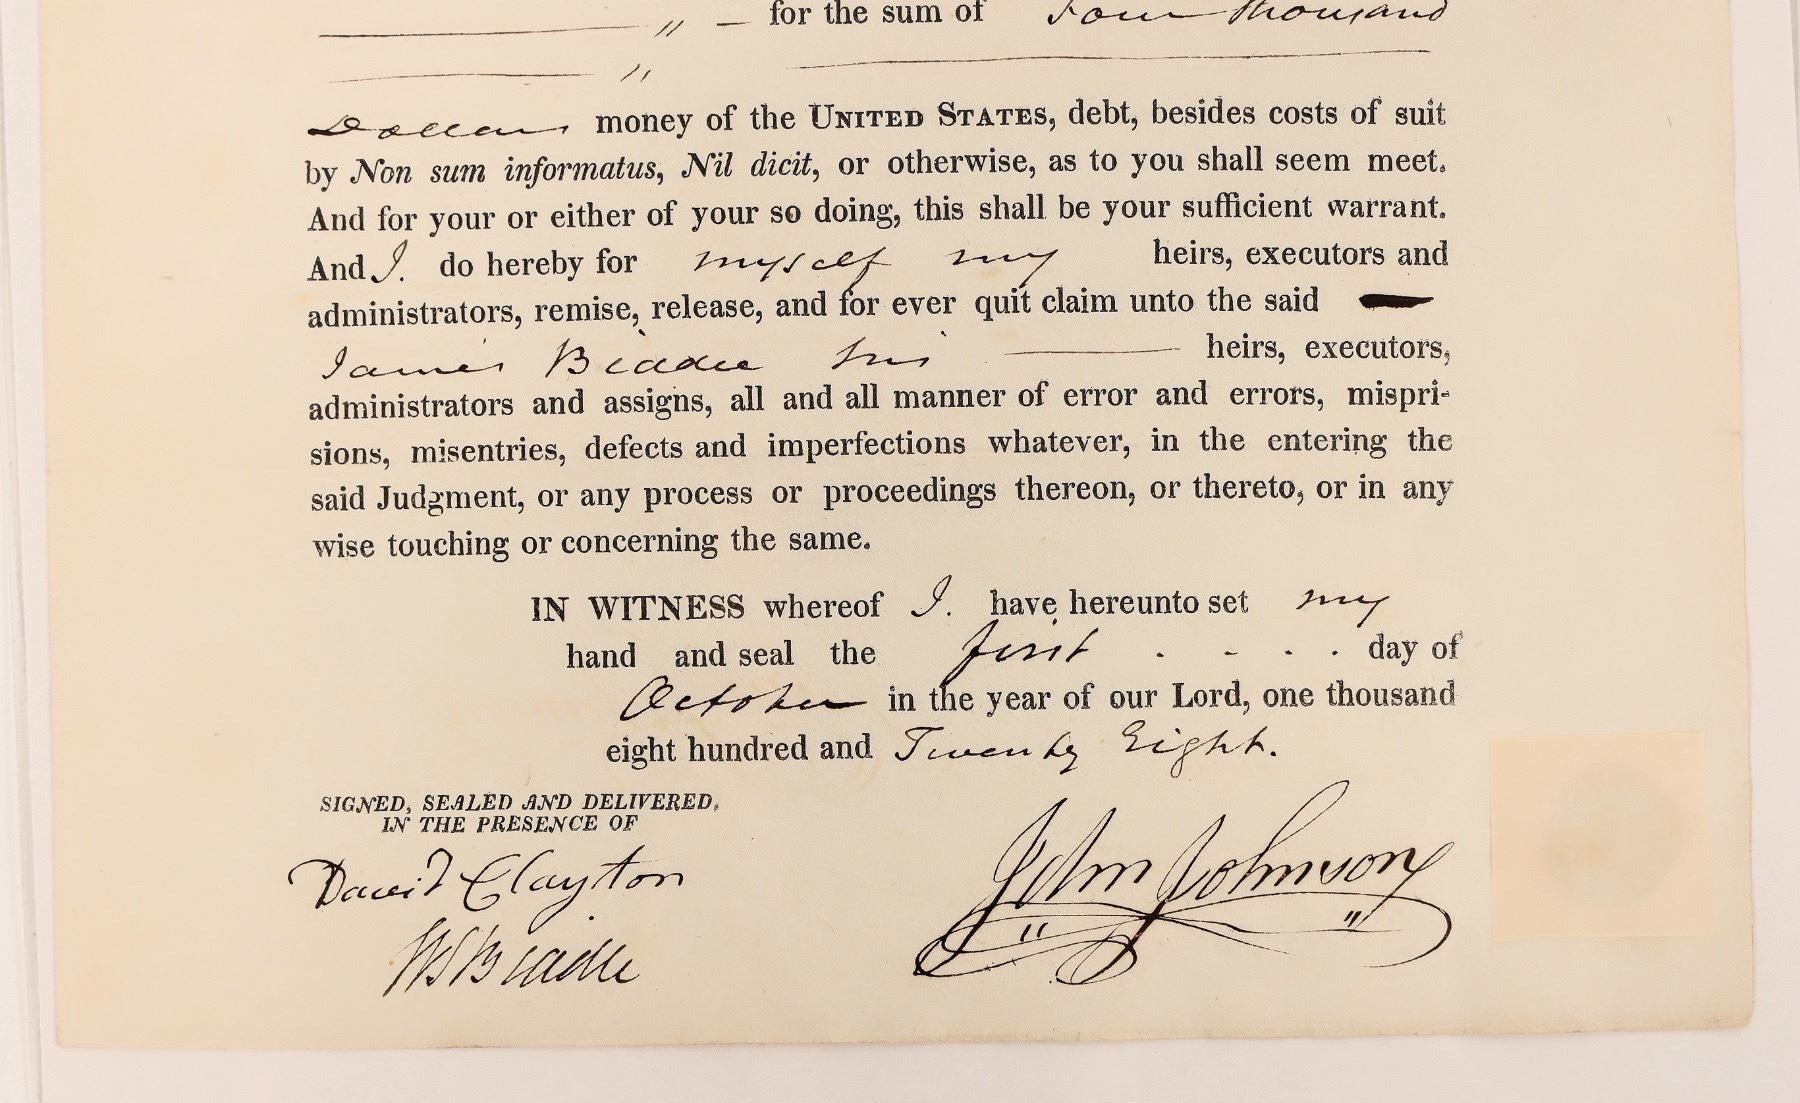 for the sum of Four Thousand
Dollars money of the UNITED STATES, debt, besides costs of suit
by Non sum informatus, Nil dicit, or otherwise, as to you shall seem meet.
And for your or either of your so doing, this shall be your sufficient warrant.
And I. do hereby for myself my heirs, executors and
administrators, remise, release, and for ever quit claim unto the said
James Biddle his heirs, executors,
administrators and assigns, all and all manner of error and errors, mispri-
sions, misentries, defects and imperfections whatever, in the entering the
said Judgment, or any process or proceedings thereon, or thereto, or in any
wise touching or concerning the same.
IN WITNESS whereof I. have hereunto set my
hand and seal the first day of
October in the year of our Lord, one thousand
eight hundred and Twenty Eight.
SIGNED, SEALED AND DELIVERED,
IN THE PRESENCE OF
David Clayton
John Johnson
WS Biddle